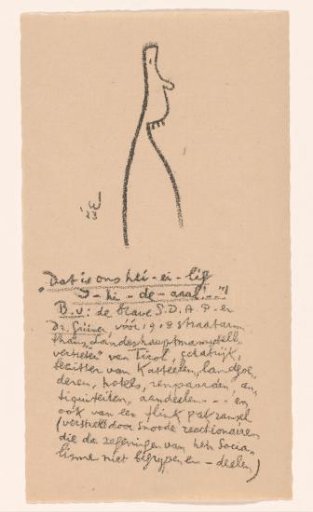 "Dat is ons hei-ei-lig
I-hi-de-aaal....."!
B.v: de brave S.D.A.P.-er
Dr. Grüner, vóór 1918 straatarm,
thans Landeshauptmannstell-
vertreter van Tirol, schatrijk,
bezitter van Kasteelen, landgoe-
deren, hotels, renpaarden, an-
tiquiteiten, aandeelen - - - en
ook van een flink pak ransel
(verstrekt door snoode reactionairen
die de zegeningen van het Socia-
lisme niet begrijpen en - deelen)